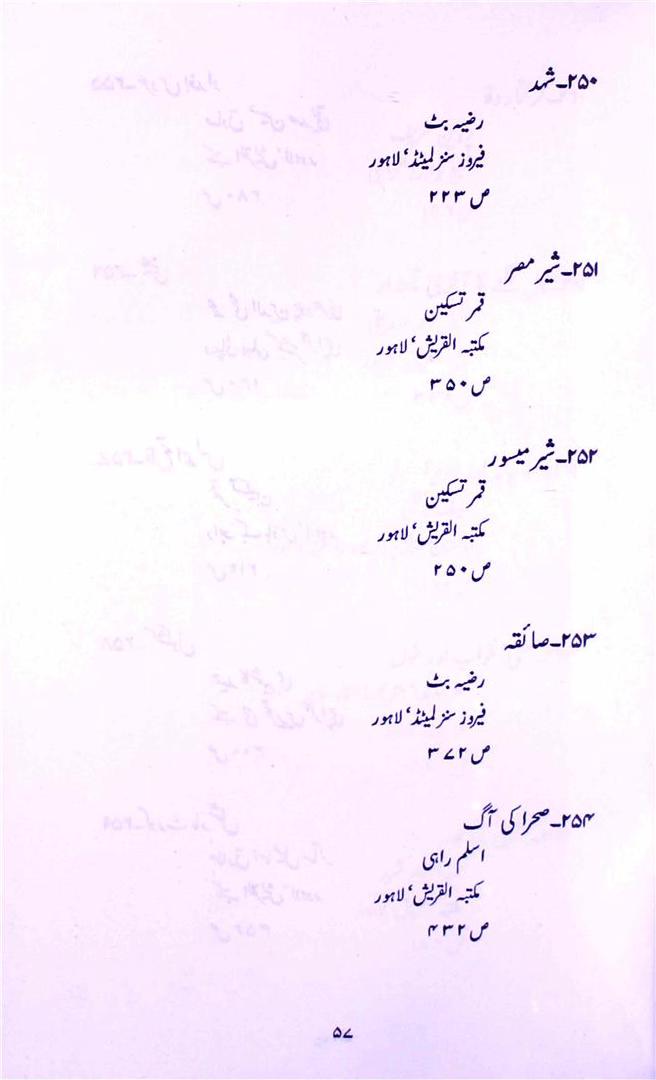 ۲۵۰۔شہد
رضیہ بٹ
فیروز سنز لمیٹڈ‘ لاہور
ص ۲۲۳
۲۵۱۔شیر مصر
قمر تسکین
مکتبہ القریش‘ لاہور
ص ۳۵۰
۲۵۲۔شیر میسور
قمر تسکین
مکتبہ القریش‘ لاہور
ص ۲۵۰
۲۵۳۔صائقہ
رضیہ بٹ
فیروز سنز لمیٹڈ‘ لاہور
ص ۳۷۲
۲۵۴۔صحرا کی آگ
اسلم راہی
مکتبہ القریش‘ لاہور
ص ۴۳۲
۵۷